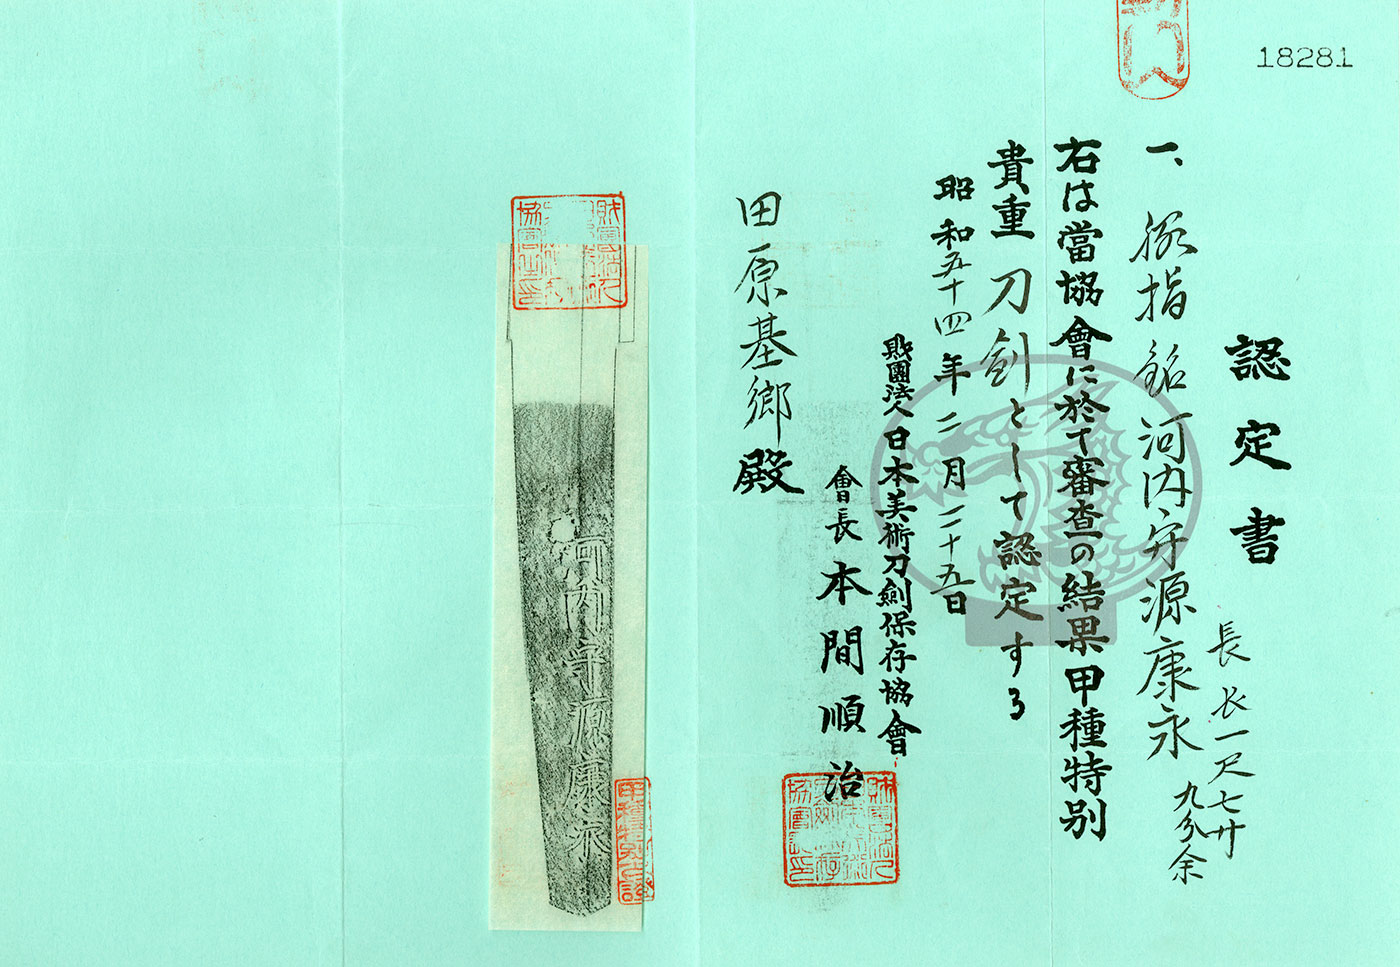 18281
認定書
一、脇指 銘 河内守源康永
長 長一尺七寸
九分余
右は當協會に於て審査の結果甲種特別
貴重刀剣として認定する
昭和五十四年二月二十五日
財團法人日本美術刀劍保存協會
會長 本間順治
田原基郷殿
河内守源康永